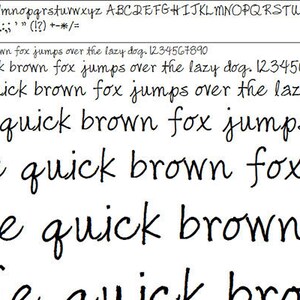 mnopqrstuvwxyz ABCDEFGHIJKLMNOPQRSTU
.:,; ' " (!?) +-*/=
brown fox jumps over the lazy dog. 1234567890
k brown fox jumps over the lazy dog. 123456
ck brown fox jumps over the lazy
quick brown fox jumps
e quick brown fox
e quick brown
e quick bro